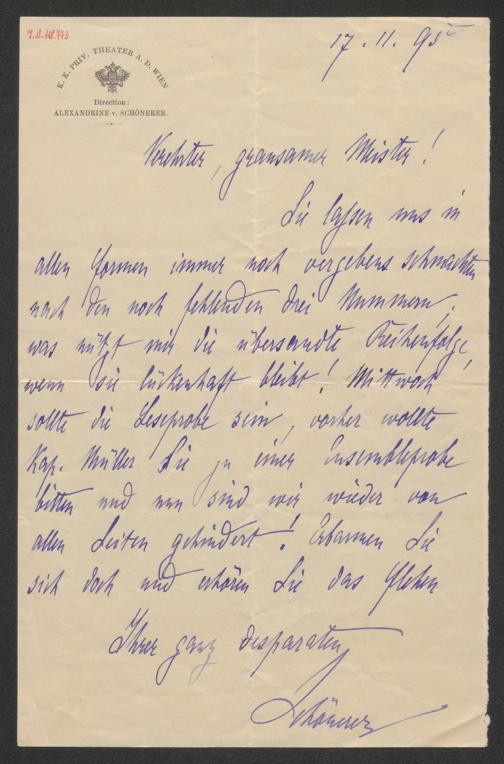 K. K. PRIV. THEATER A. D. WIEN
Direction:
ALEXANDRINE v. SCHÖNERER.
17. 11. 95
Verehrter, grausamer Meister!
Sie lassen uns in
allen Formen immer noch vergebens schmachten
nach den noch fehlenden drei Nummern;
was nützt mir die übersandte Reihenfolge,
wenn sie lückenhaft bleibt! Mittwoch
sollte die Leseprobe sein, vorher wollte
Kap. Müller Sie zu einer Ensembleprobe
bitten und nun sind wir wieder von
allen Seiten gehindert! Erbarmen Sie
sich doch und erhören Sie das Flehen
Ihrer ganz desparaten
Schönerer